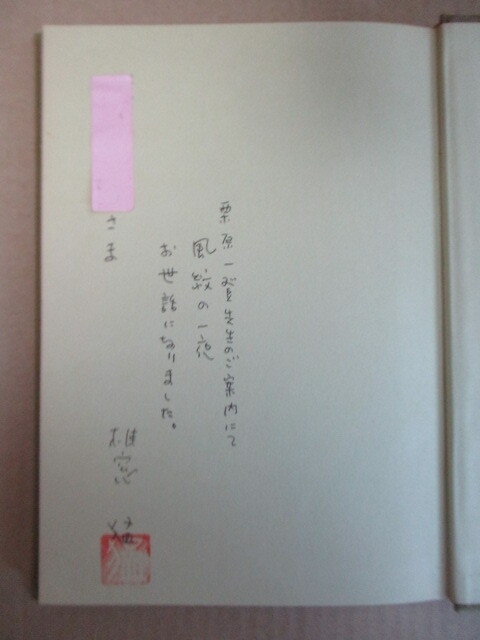 栗原一登先生のご案内にて
風紋の一夜
お世話になりました。
さま
椎窓 猛